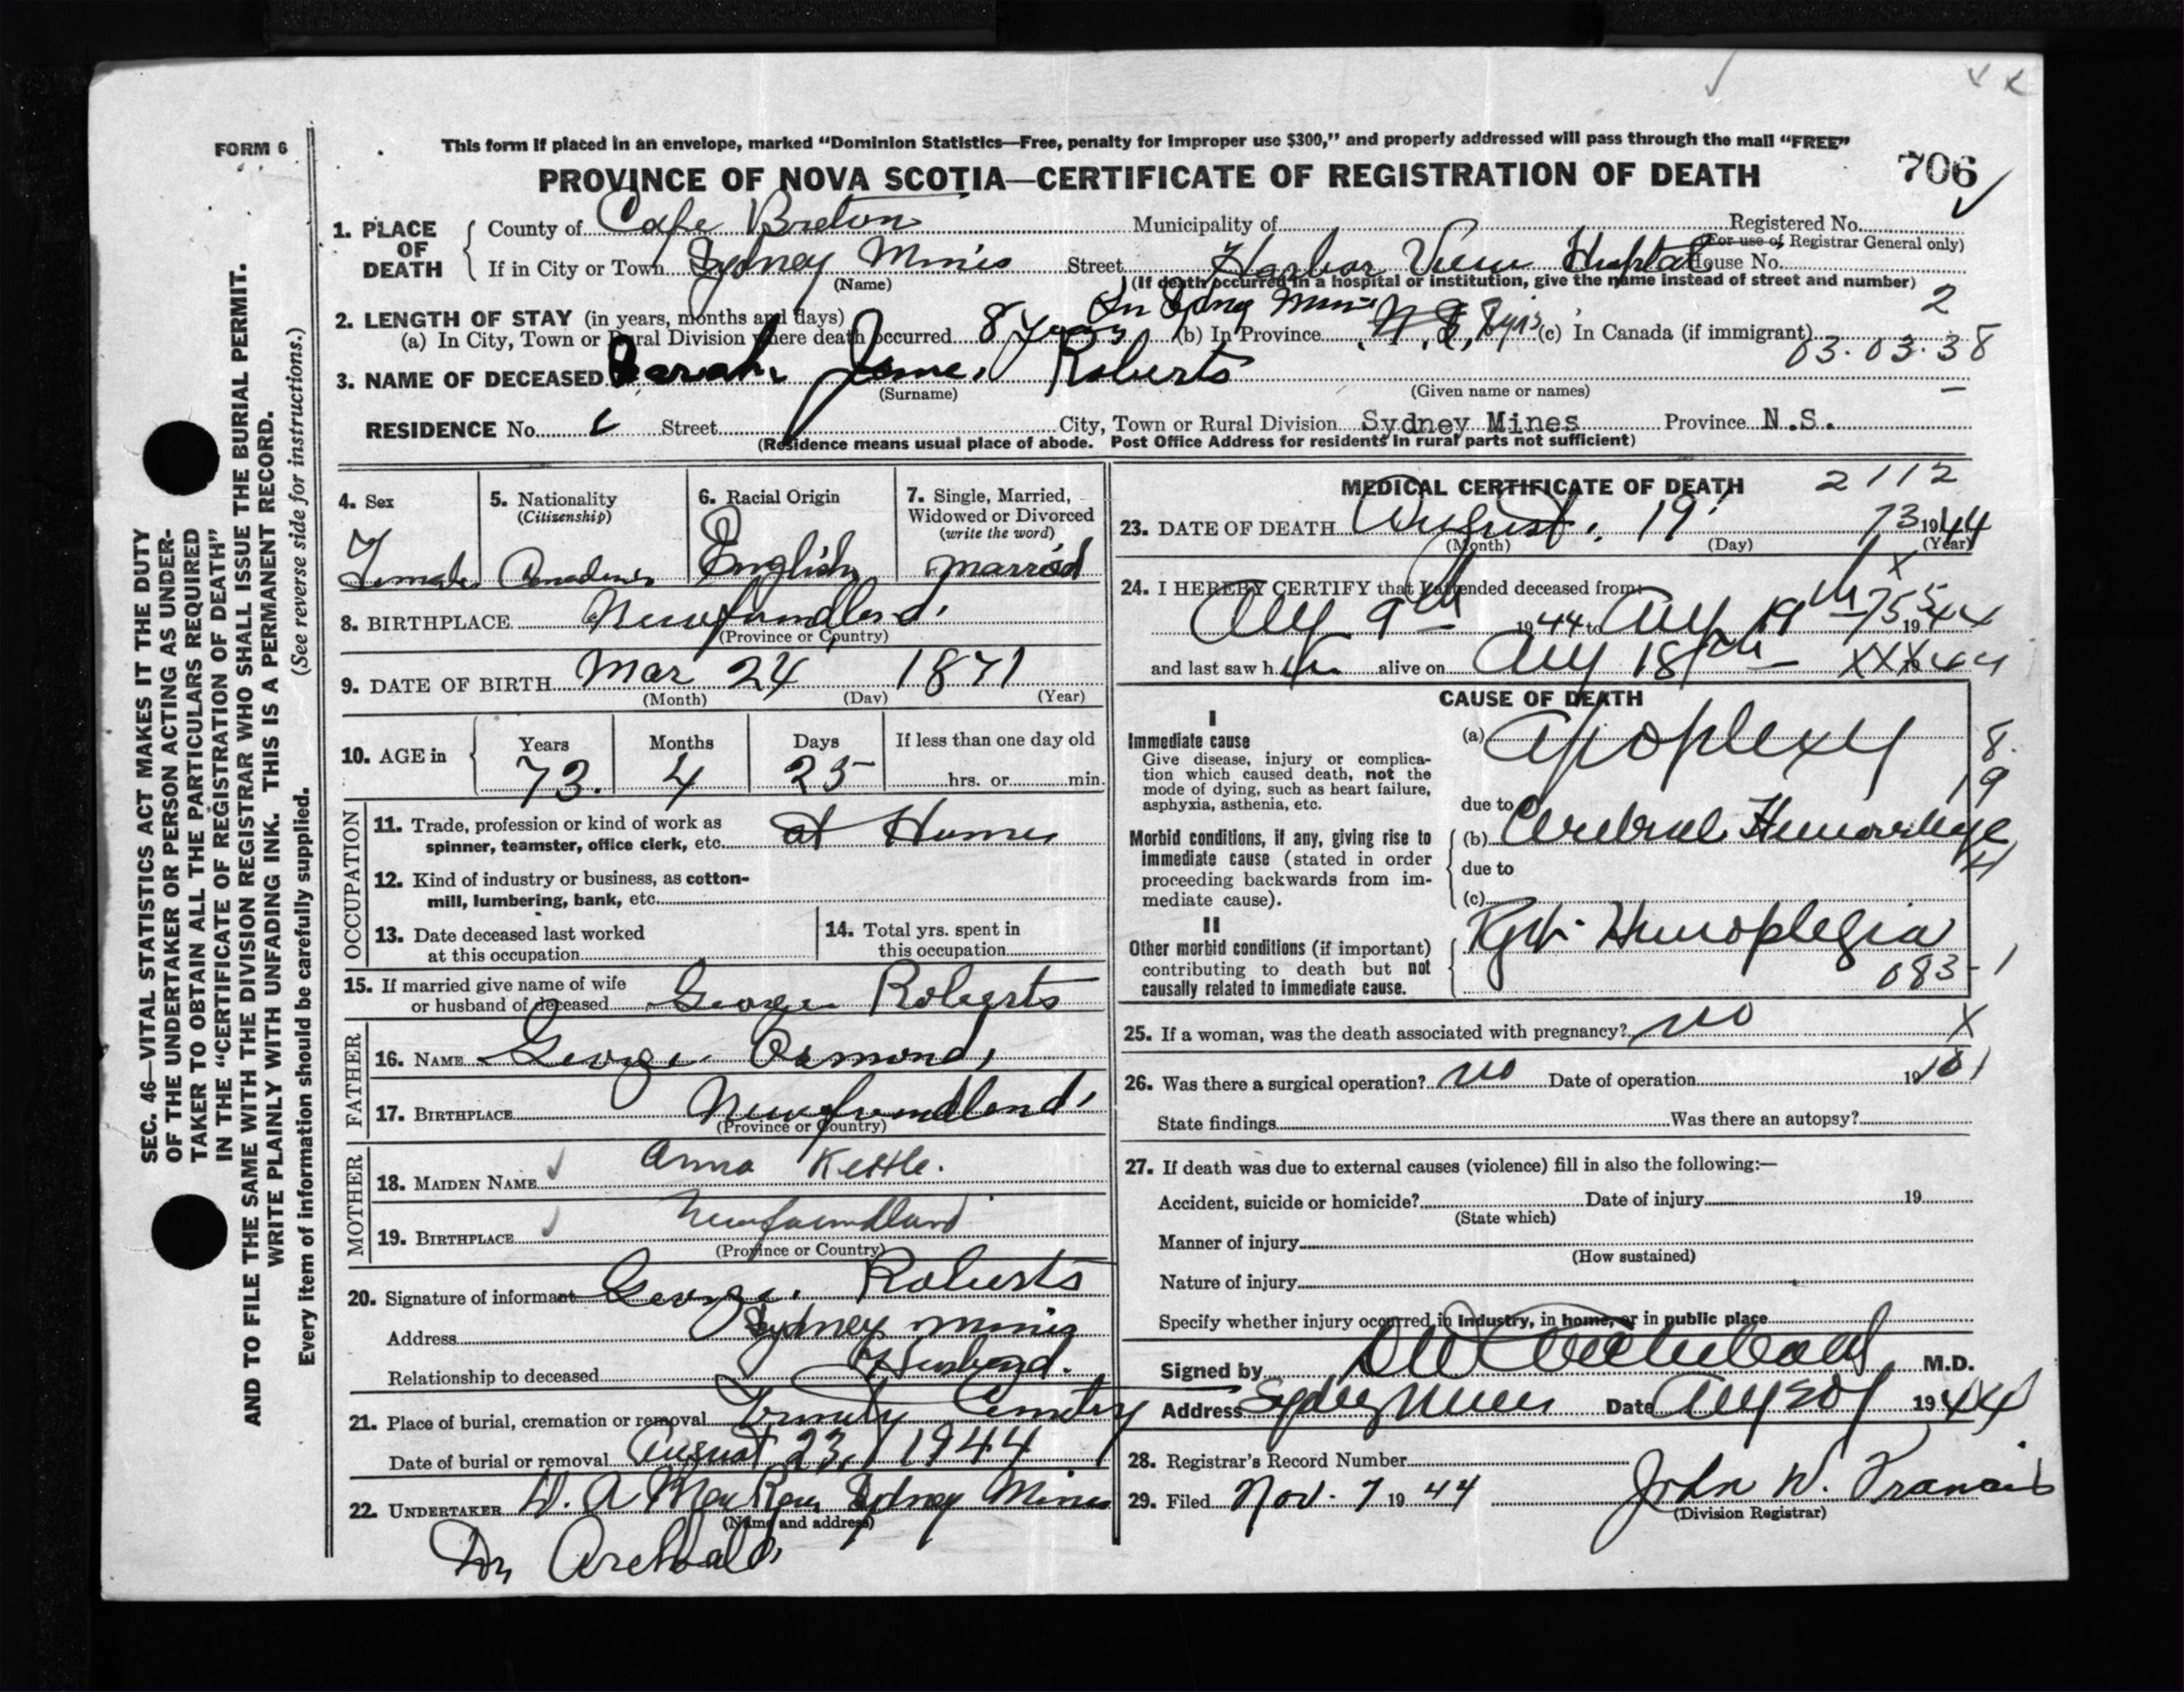 FORM 6
This form if placed in an envelope, marked "Dominion Statistics—Free, penalty for improper use $300," and properly addressed will pass through the mail "FREE"
PROVINCE OF NOVA SCOTIA—CERTIFICATE OF REGISTRATION OF DEATH
706
SEC. 46—VITAL STATISTICS ACT MAKES IT THE DUTY
OF THE UNDERTAKER OR PERSON ACTING AS UNDER-
TAKER TO OBTAIN ALL THE PARTICULARS REQUIRED
IN THE "CERTIFICATE OF REGISTRATION OF DEATH"
AND TO FILE THE SAME WITH THE DIVISION REGISTRAR WHO SHALL ISSUE THE BURIAL PERMIT.
WRITE PLAINLY WITH UNFADING INK. THIS IS A PERMANENT RECORD.
Every item of information should be carefully supplied. (See reverse side for instructions.)
1. PLACE OF DEATH
County of Cape Breton Municipality of Registered No.
(For use of Registrar General only)
If in City or Town Sydney Mines Street Harbor View Hosptal House No.
(Name) (If death occurred in a hospital or institution, give the name instead of street and number)
2. LENGTH OF STAY (in years, months and days) In Sydney Mines 2
(a) In City, Town or Rural Division where death occurred 8 years (b) In Province N.S. 8 yrs (c) In Canada (if immigrant)
03.03.38
3. NAME OF DECEASED Sarah Jane Roberts
(Surname) (Given name or names)
RESIDENCE No. Street City, Town or Rural Division Sydney Mines Province N.S.
(Residence means usual place of abode. Post Office Address for residents in rural parts not sufficient)
4. Sex
Female
5. Nationality
(Citizenship)
Canadian
6. Racial Origin
English
7. Single, Married,
Widowed or Divorced
(write the word)
married
8. BIRTHPLACE Newfoundland
(Province or Country)
9. DATE OF BIRTH Mar 24 1871
(Month) (Day) (Year)
10. AGE in
Years Months Days If less than one day old
73. 4 25 hrs. or min.
OCCUPATION
11. Trade, profession or kind of work as
spinner, teamster, office clerk, etc. at Home
12. Kind of industry or business, as cotton-
mill, lumbering, bank, etc.
13. Date deceased last worked
at this occupation
14. Total yrs. spent in
this occupation
15. If married give name of wife
or husband of deceased George Roberts
FATHER
16. NAME George Osmond
17. BIRTHPLACE Newfoundland
(Province or Country)
MOTHER
18. MAIDEN NAME Anna Kettle.
19. BIRTHPLACE Newfoundland
(Province or Country)
20. Signature of informant George Roberts
Address Sydney Mines
Relationship to deceased Husband.
21. Place of burial, cremation or removal Trinity Cemetry
Date of burial or removal August 23, 1944
22. UNDERTAKER W. A MacKay Sydney Mines
(Name and address)
Dr Archibald
MEDICAL CERTIFICATE OF DEATH 2112
23. DATE OF DEATH August 19 73 1944
(Month) (Day) (Year)
24. I HEREBY CERTIFY that I attended deceased from:
Aug 9th 1944 to Aug 19th 1944
and last saw her alive on Aug 18th 1944
CAUSE OF DEATH
I
Immediate cause
Give disease, injury or complica-
tion which caused death, not the
mode of dying, such as heart failure,
asphyxia, asthenia, etc.
(a) Apoplexy
due to
Morbid conditions, if any, giving rise to
immediate cause (stated in order
proceeding backwards from im-
mediate cause).
(b) Cerebral Hemorrhage
due to
(c)
II
Other morbid conditions (if important)
contributing to death but not
causally related to immediate cause.
Rght Hemoplegia
083-1
25. If a woman, was the death associated with pregnancy? no X
26. Was there a surgical operation? no Date of operation 19
State findings Was there an autopsy?
27. If death was due to external causes (violence) fill in also the following:—
Accident, suicide or homicide? Date of injury 19
(State which)
Manner of injury
(How sustained)
Nature of injury
Specify whether injury occurred in industry, in home, or in public place
Signed by D W Archibald M.D.
Address Sydney Mines Date Aug 20 1944
28. Registrar's Record Number
29. Filed Nov. 7 1944 John W. Francis
(Division Registrar)